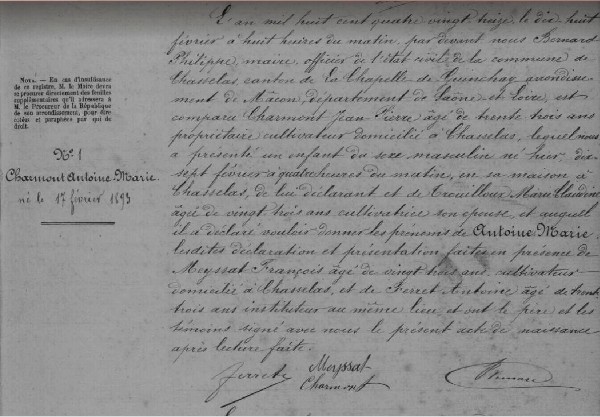 NOTA. — En cas d'insuffisance
de ce registre, M. le Maire devra
se procurer directement des feuilles
supplémentaires qu'il adressera à
M. le Procureur de la République
de son arrondissement, pour être
cotées et paraphées par qui de
droit.
N° 1
Charmont Antoine Marie
né le 17 février 1893
L'an mil huit cent quatre vingt treize le dix huit
février à huit heures du matin, par devant nous Bernard
Philippe, maire, officier de l'état civil de la commune de
Chasselas canton de La Chapelle-de-Guinchay arrondisse-
ment de Mâcon, département de Saône-et-Loire, est
comparu Charmont Jean Pierre âgé de trente trois ans
propriétaire cultivateur domicilié à Chasselas, lequel nous
a présenté un enfant du sexe masculin né hier dix
sept février à quatre heures du matin, en sa maison à
Chasselas, de lui déclarant et de Trouilloux Marie Claudine
âgée de vingt trois ans cultivatrice son épouse, et auquel
il a déclaré vouloir donner les prénoms de Antoine Marie
lesdites déclaration et présentation faites en présence de
Meyssat François âgé de vingt trois ans, cultivateur
domicilié à Chasselas, et de Ferret Antoine âgé de trente
trois ans instituteur au même lieu, et ont le père et les
témoins signé avec nous le présent acte de naissance
après lecture faite.
Meyssat
Charmont